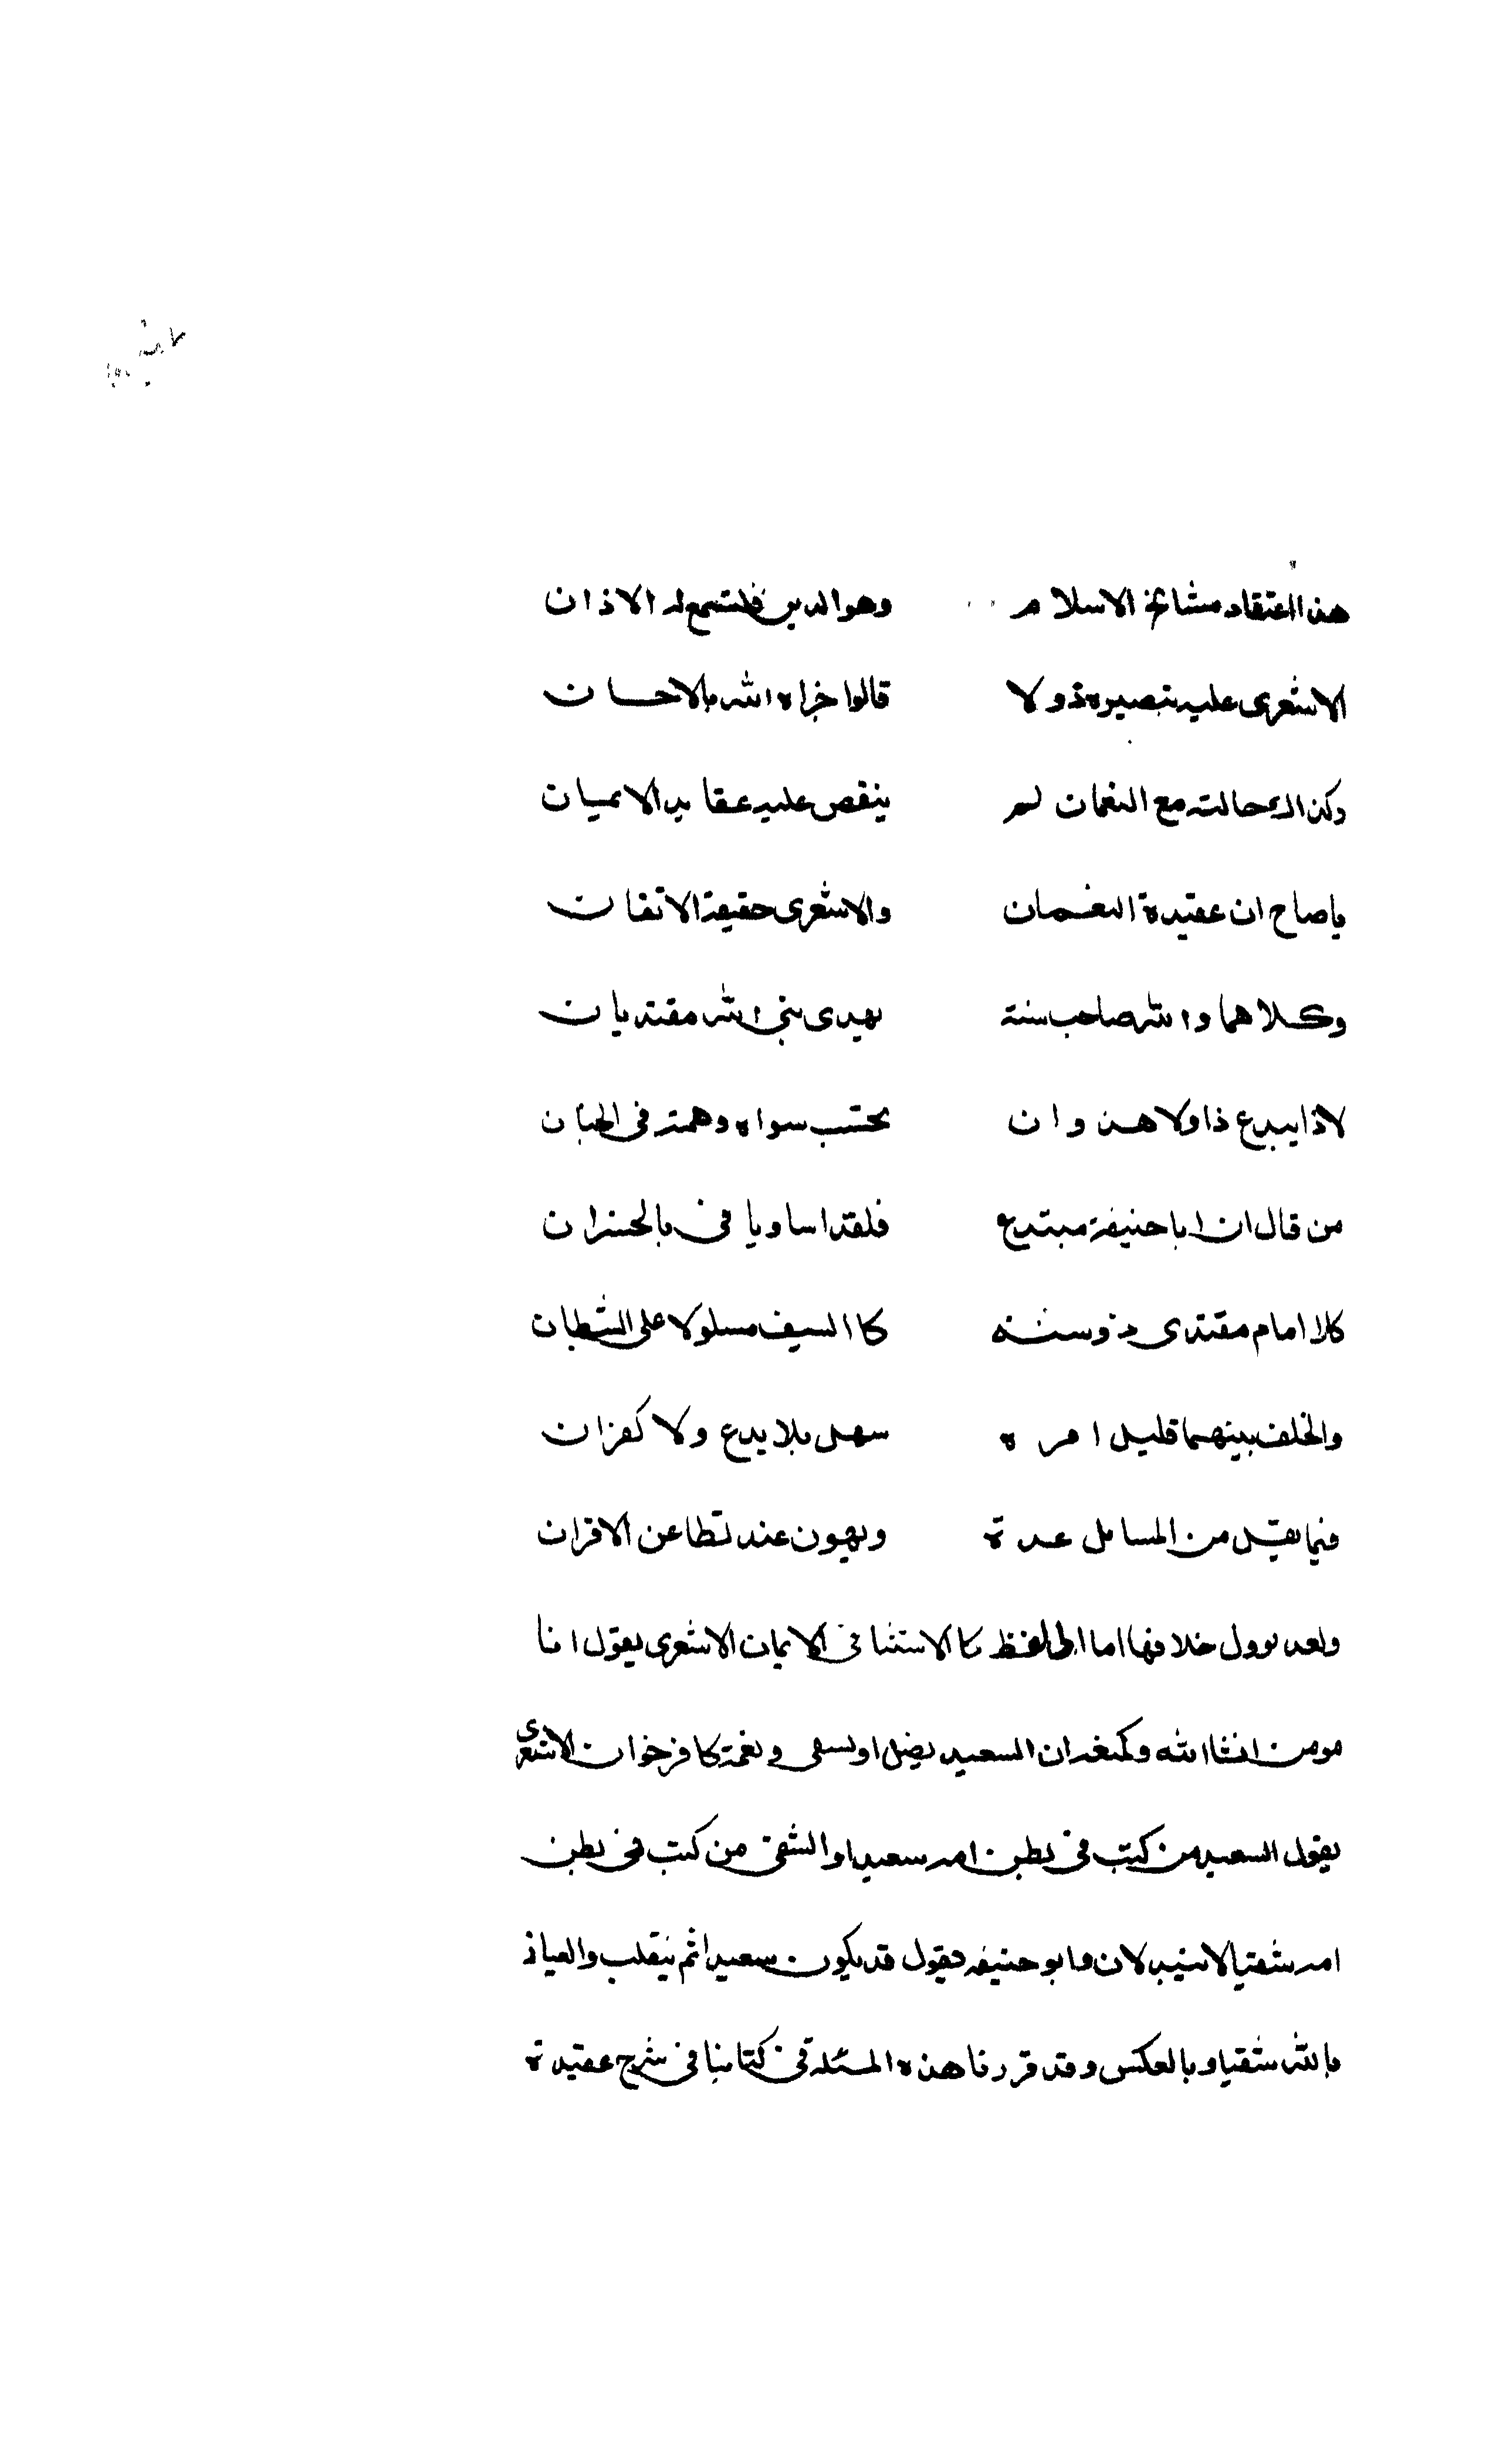 هذا اعتقاد مشائخ الاسلام وهو الدين فلتسمع له الاذان
الاشعرى عليه ينصره ذو ولا قالوا جزاه الله بالاحسان
وكذاك حالته مع النعمان لم ينقص عليه عقايد الايمان
ياصاح ان عقيدة النعمان والاشعرى حقيقة الاتقان
وكلاهما والله صاحب سنة بهدى نبى الله مقتديان
لاذا يبدع ذا ولا هذا وان تحسب سواه وهمت فى الحسبان
من قال ان اباحنيفة مبتدع فلقد اساو يا فى بالخسران
كلا امام مقتدى ذو سنة كاالسيف مسلولا على الشيطان
والخلف بينهما قليل امره سهل بلا بدع ولا كفران
فيما يقل من المسايل عدة ويهون عند تطاعن الاقران
ولعد يوول خلافها اما الى لفظ كالاستثنا فى الايمان الاشعرى يقول انا
مومن انشاالله وكمنعه ان السعيد يضل او يشقى ونعمة كافر خوان الاشعرى
يقول السعيد من كتب فى بطن امه سعيدا والشقى من كتب فى بطن
امه شقيا لا يتبدلان وابو حنيفه يقول قد يكون سعيدا ثم ينقلب والعياذ
بالله شقيا وبالعكس وقد قررنا هذه المسئلة فى كتابنا فى شرح عقيدة